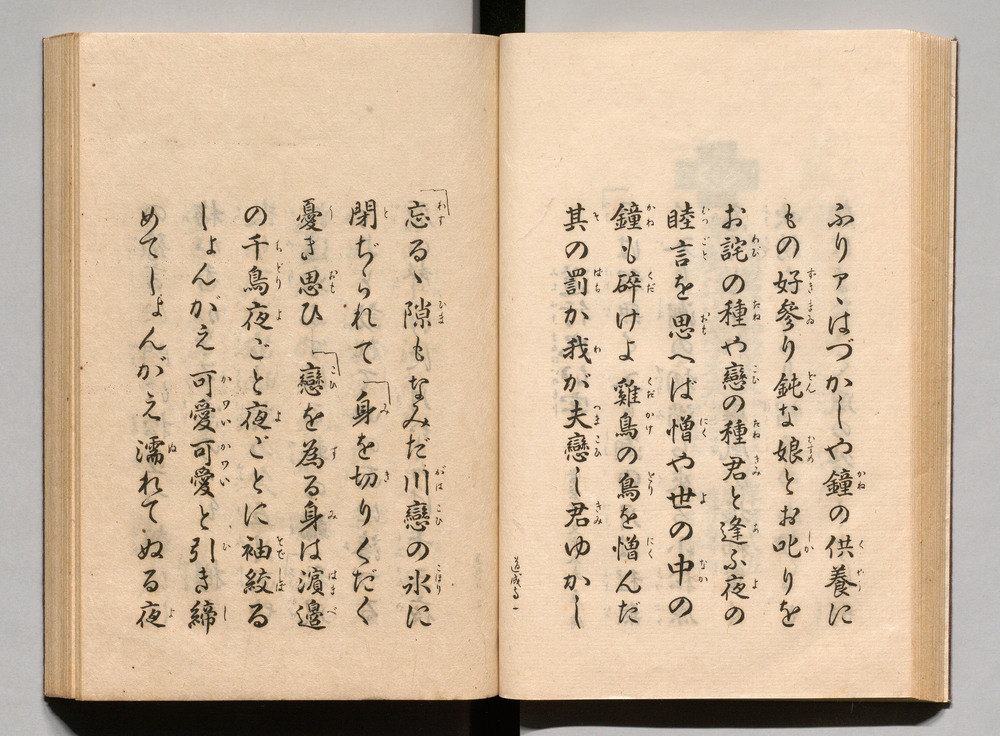 ふりァヽはづかしや鐘の供養に
もの好參り鈍な娘とお叱りを
お詫の種や戀の種君と逢ふ夜の
睦言を思へば憎や世の中の
鐘も碎けよ雞鳥の鳥を憎んだ
其の罰か我が夫戀し君ゆかし
忘るヽ隙もなみだ川戀の氷に
閉ぢられて身を切りくだく
憂き思ひ 戀を為る身は濵邊
の千鳥夜ごと夜ごとに袖絞る
しよんがえ可愛可愛と引き締
めてしよんがえ濡れてぬる夜